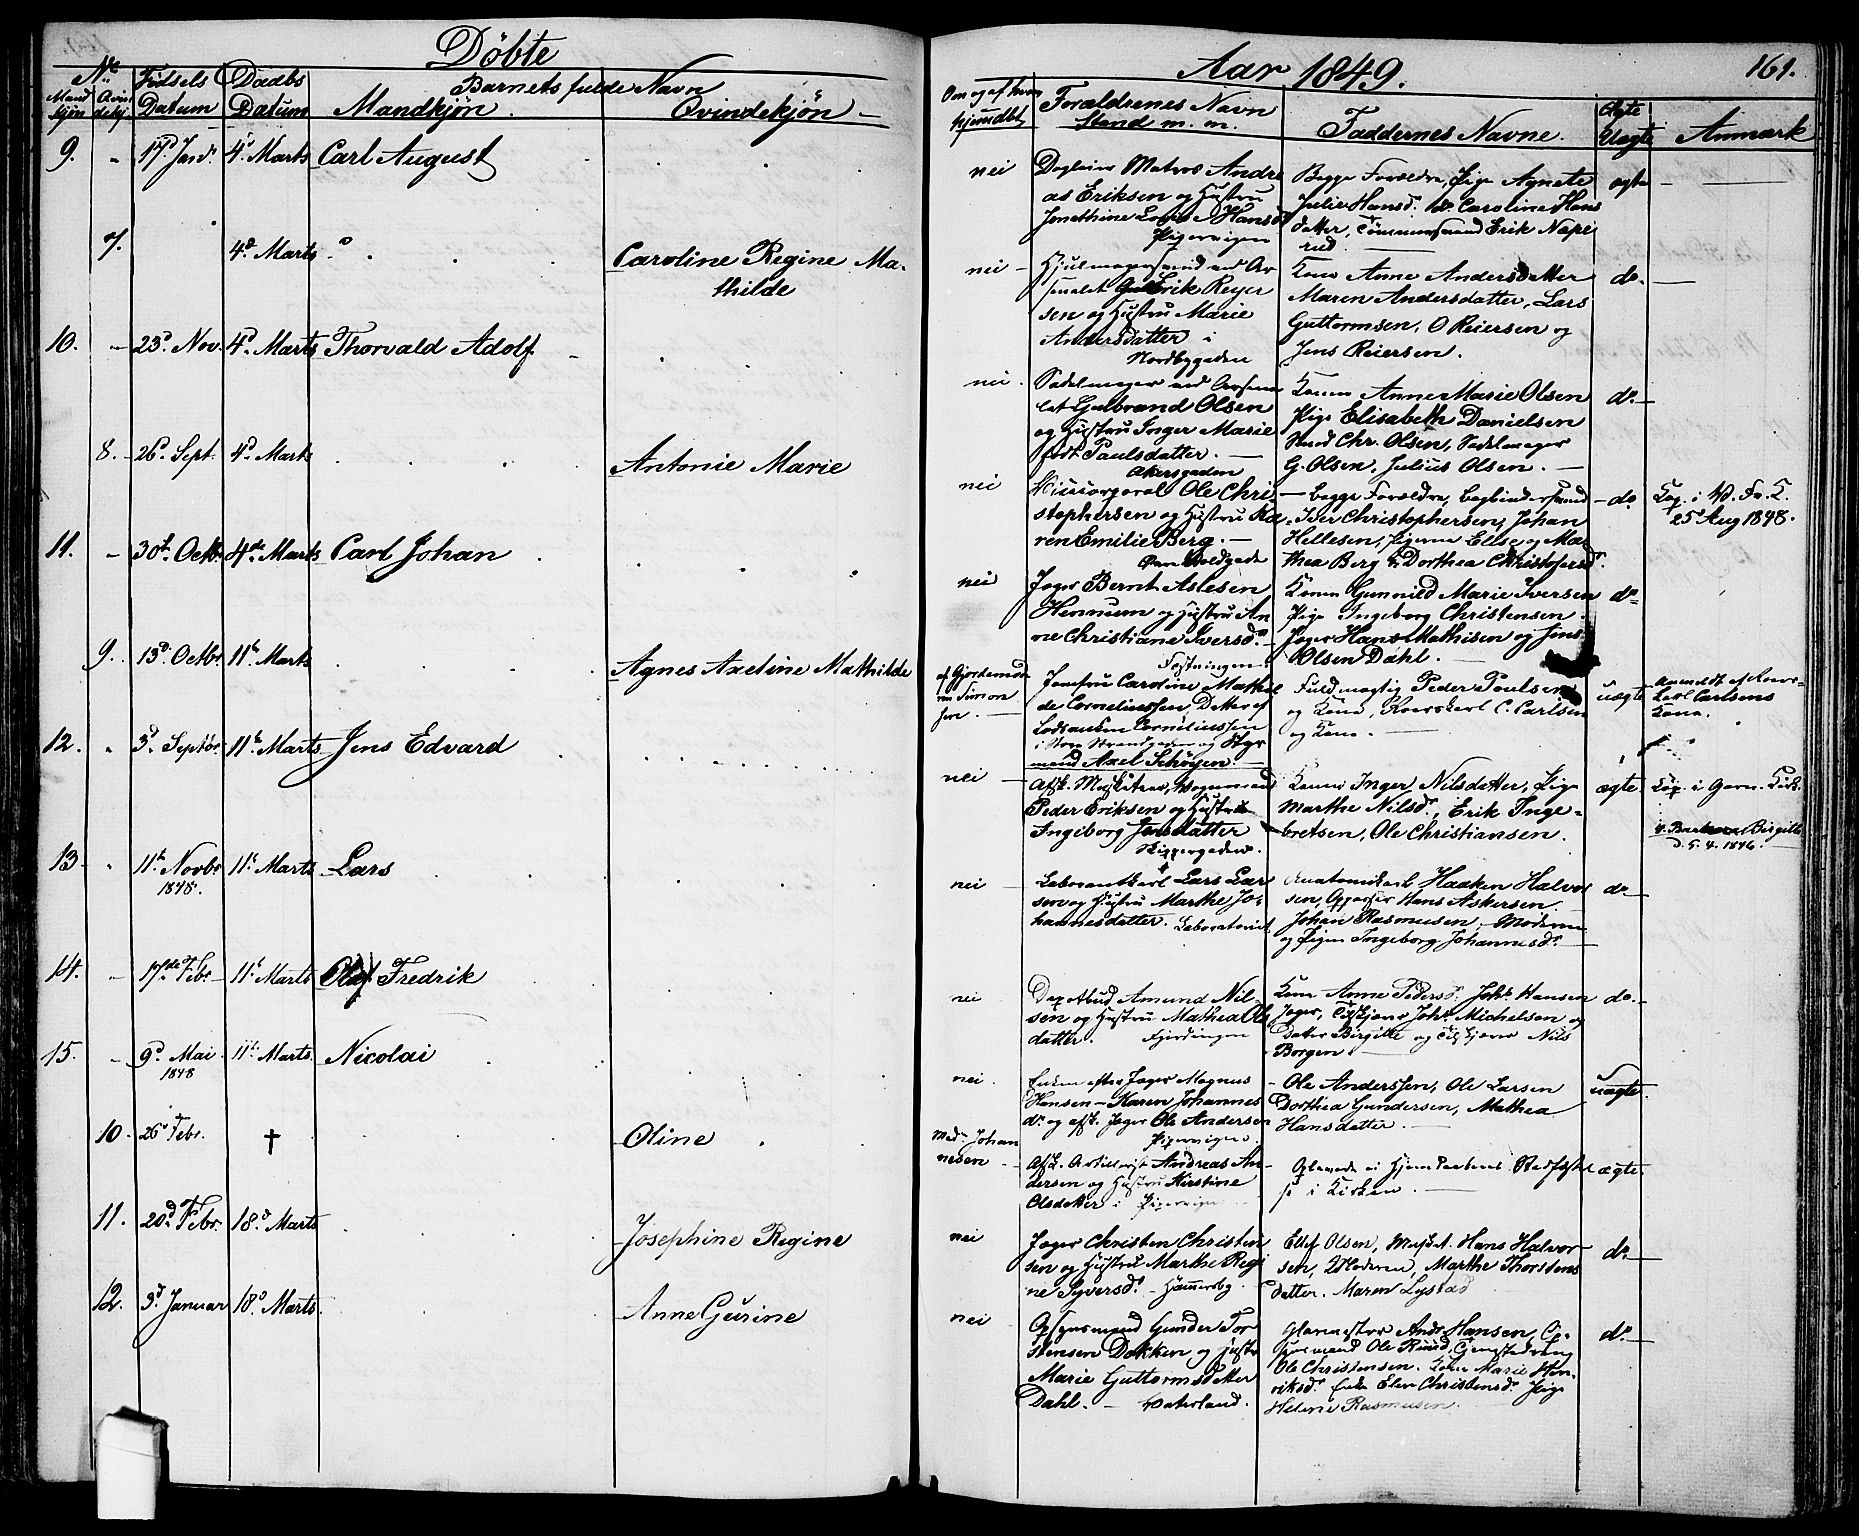 Döbte
Aar 1849.
161.
No.
Mandkjøn
Qvindekj
Födsels Datum
Daabs Datum
Barnets fulde Navn
Mandkjön.
Qvindekjön
Om og af hvem hjemdöbt
Forældrenes Navn
Stand m. m.
Faddernes Navne.
Ægte
Uægte
Anmærk
9. " 17d Jan. 4d Marts Carl August
nei
Matros Andre
as Eriksen og Hustru
Hansd.
Pipervigen
Begge Forældre, Pige Agnete
Julie Hansd. Caroline Hans
datter, Tömmermand Erik Nape
rud.
ægte
7. 4d Marts
Caroline Regine Ma-
thilde
nei
Erik Reyer
sen og Hustru Marie
Andersdatter i
Nordbygaden
Kone Anne Andersdatter
Maren Andersdatter, Lars
Guttormsen, O Reiersen og
Jens Reiersen.
do.
10. 23d Nov. 4d Marts Thorvald Adolf
nei
Sadelmager ved Arsena
let Gulbrand Olsen
og Hustru Inger Marie
født Paulsdatter.
Akersgaden
Konen Anne Marie Olsen
Pige Elisabeth Danielsen
Chr. Olsen, Sadelmager
G. Olsen, Julius Olsen.
do.
8. 26d Sept. 4d Marts
Antonie Marie
nei
Ole Chri-
stophersen og Hustru Ka
ren Emilie Berg.
Begge Forældre, Bogbindersvend
Iver Christophersen, Johan
Hellesen, Pigerne Else og Mar
thea Berg, Dorthea Christofersd.
do.
25 Aug 1848.
11. 30te Octb. 4de Marts Carl Johan
nei
Jæger Bernt Aslesen
Hennum og Hustru An
ne Christiane Iversd.
Fæstningen
Konen Gunnild Marie Iversen
Pige Ingeborg Christensen
Jæger Hans Mathisen og Jens
Olsen Dahl.
do.
9. 13d Octbr. 11te Marts
Agnes Axeline Mathilde
af Gjordemod
ren Simon
sen.
Jomfru Caroline Mathil
de Corneliussen, Datter af
Lodsmand Corneliussen
i Store Strandgaden og Styr
mand Axel Schöyen.
Fuldmægtig Peder Poulsen
og Kone, C. Carlsen
og Kone.
uægte
Anmeldt af
Carlsens
Kone.
12. " 3d Septbr. 11te Marts Jens Edvard
nei
Afsk. Musketeer, Vognmand
Peder Eriksen og Hustru
Ingeborg Jensdatter
Skippergaden.
Konen Inger Nilsdatter, Pige
Marthe Nilsd., Erik Inge-
bretsen, Ole Christiansen.
ægte
Kop. i Garn. Kirk.
Birgitte
d. 5. 4. 1846.
13. " 11te Novbr 1848. 11te Marts Lars
nei
Laborantkarl Lars Lar
sen og Hustru Marthe Jo-
hannesdatter. Laboratoriet
Anatomikarl Haaken Halvor
sen, Oppasser Hans Askersen
Johan Rasmusen, Moderen
og Pigen Ingeborg Johannesd.
do.
14. 17de Febr. 11te Marts Olaf Fredrik
nei
Amund Nil-
sen og Hustru Mathea Ols
datter. Fjerdingen
Kone Anne Pedersd. Johs. Hansen
Jæger, Johs. Michelsen og
Datter Birgitte og Nils
Borgen.
do.
15. 9d Mai 1848 11te Marts. Nicolai
nei.
Enken efter Jæger Magnus
Hansen - Karen Johannes
dr. og afsk. Jæger Ole Andersen
Pipervigen.
Ole Anderssen, Ole Larsen
Dorthea Gundersen, Mathea
Hansdatter.
uægte.
10. 26d Febr. †
Oline
Mad. Johan
nesen
Afsk. Artillerist Andreas An-
dersen og Hustru Kirstine
Olsdatter i Pipervigen
Oplevede ei Hjemdaabens Stadfæstel
se i Kirken.
ægte
11. 20d Febr. 18d Marts
Josephine Regine
nei
Jæger Christen Christen
sen og Hustru Marthe Regi
ne Syversd. - Hammersbg.
Ellef Olsen, Musk. Hans Halvor
sen, Moderen, Marthe Thorstens
datter. Maren Lystad
do.
12. 3d Januar 18d Marts.
Anne Gurine
nei
Opsynsmand Gunder Tor
stensen Dokken og Hustr
Marie Guttormsdatter
Dahl. Vaterland.
Glarmester Andr. Hansen, Op-
synsmand Ole Ruud,
Ole Christensen. Kone Marie Hen-
riksd. Enke Elen Christensd. Pige
Helene Rasmusen.
do.